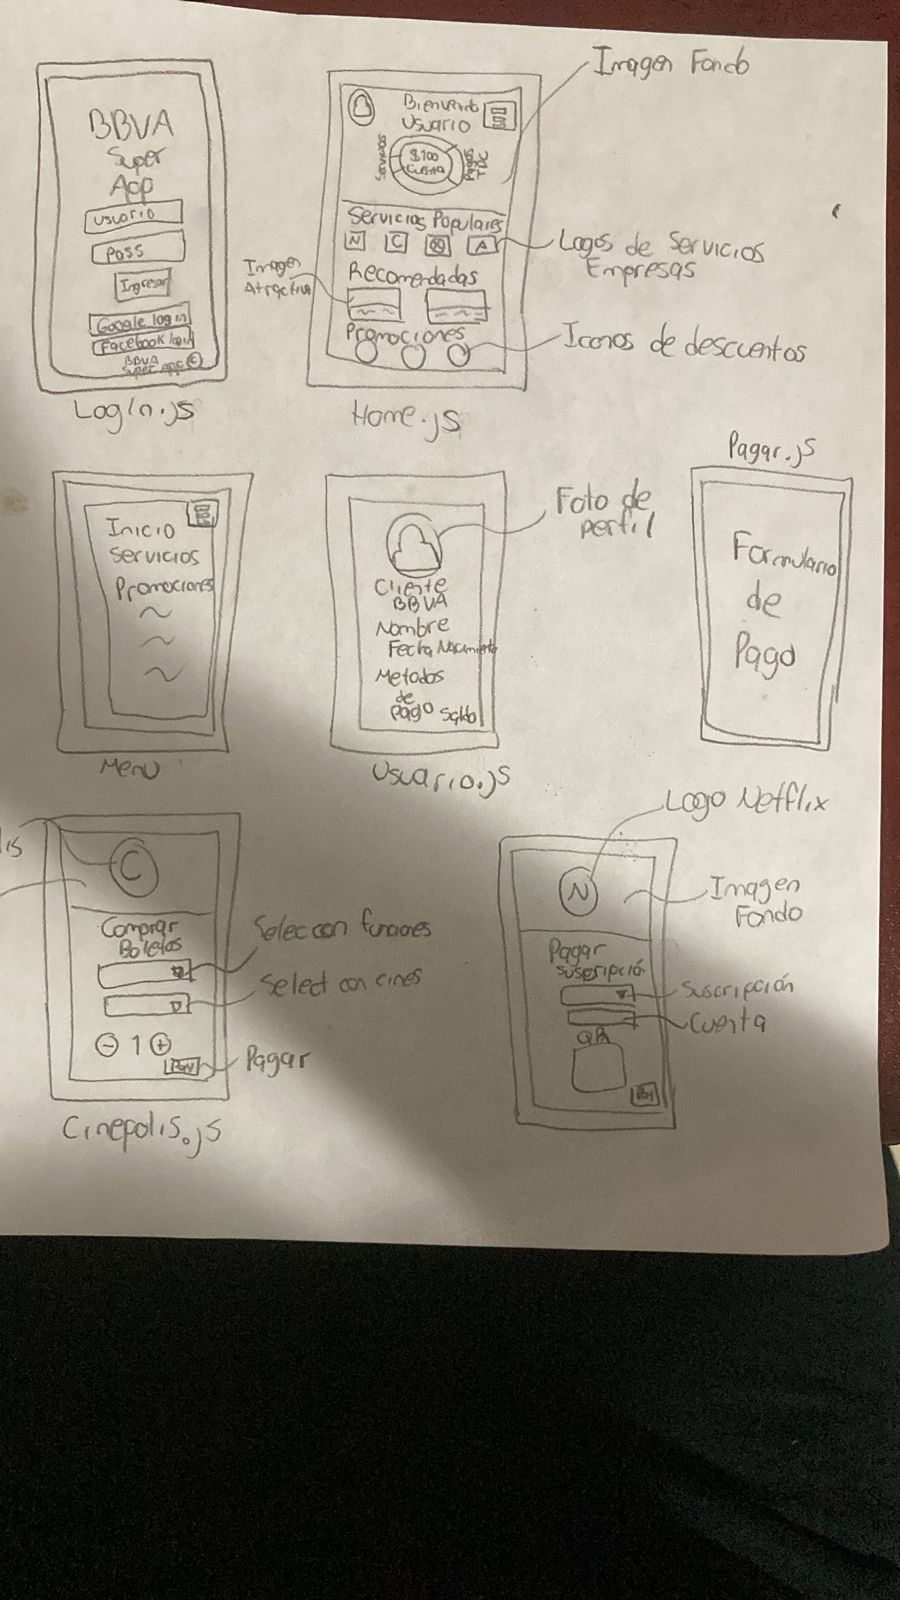 BBVA
Super
App
usuario
pass
Ingresar
Google log in
Facebook login
BBVA
Super App ©
Login.js
Imagen Fondo
Bienvenido
Usuario
$100
Cuenta
Servicios
TDC
Servicios Populares
N C A
Logos de Servicios
Empresas
Recomendadas
Imagen
Atractiva
Promociones
Iconos de descuentos
Home.js
Inicio
Servicios
Promociones
Menu
Foto de
perfil
Cliente
BBVA
Nombre
Fecha Nacimiento
Metodos
de
pago Saldo
Usuario.js
Pagar.js
Formulario
de
Pago
lis
C
Comprar
Boletos
Selec con funciones
Select con cines
- 1 +
Pay
Pagar
Cinepolis.js
Logo Netflix
N
Imagen
Fondo
Pagar
suscripción
Suscripción
Cuenta
QR
Pay